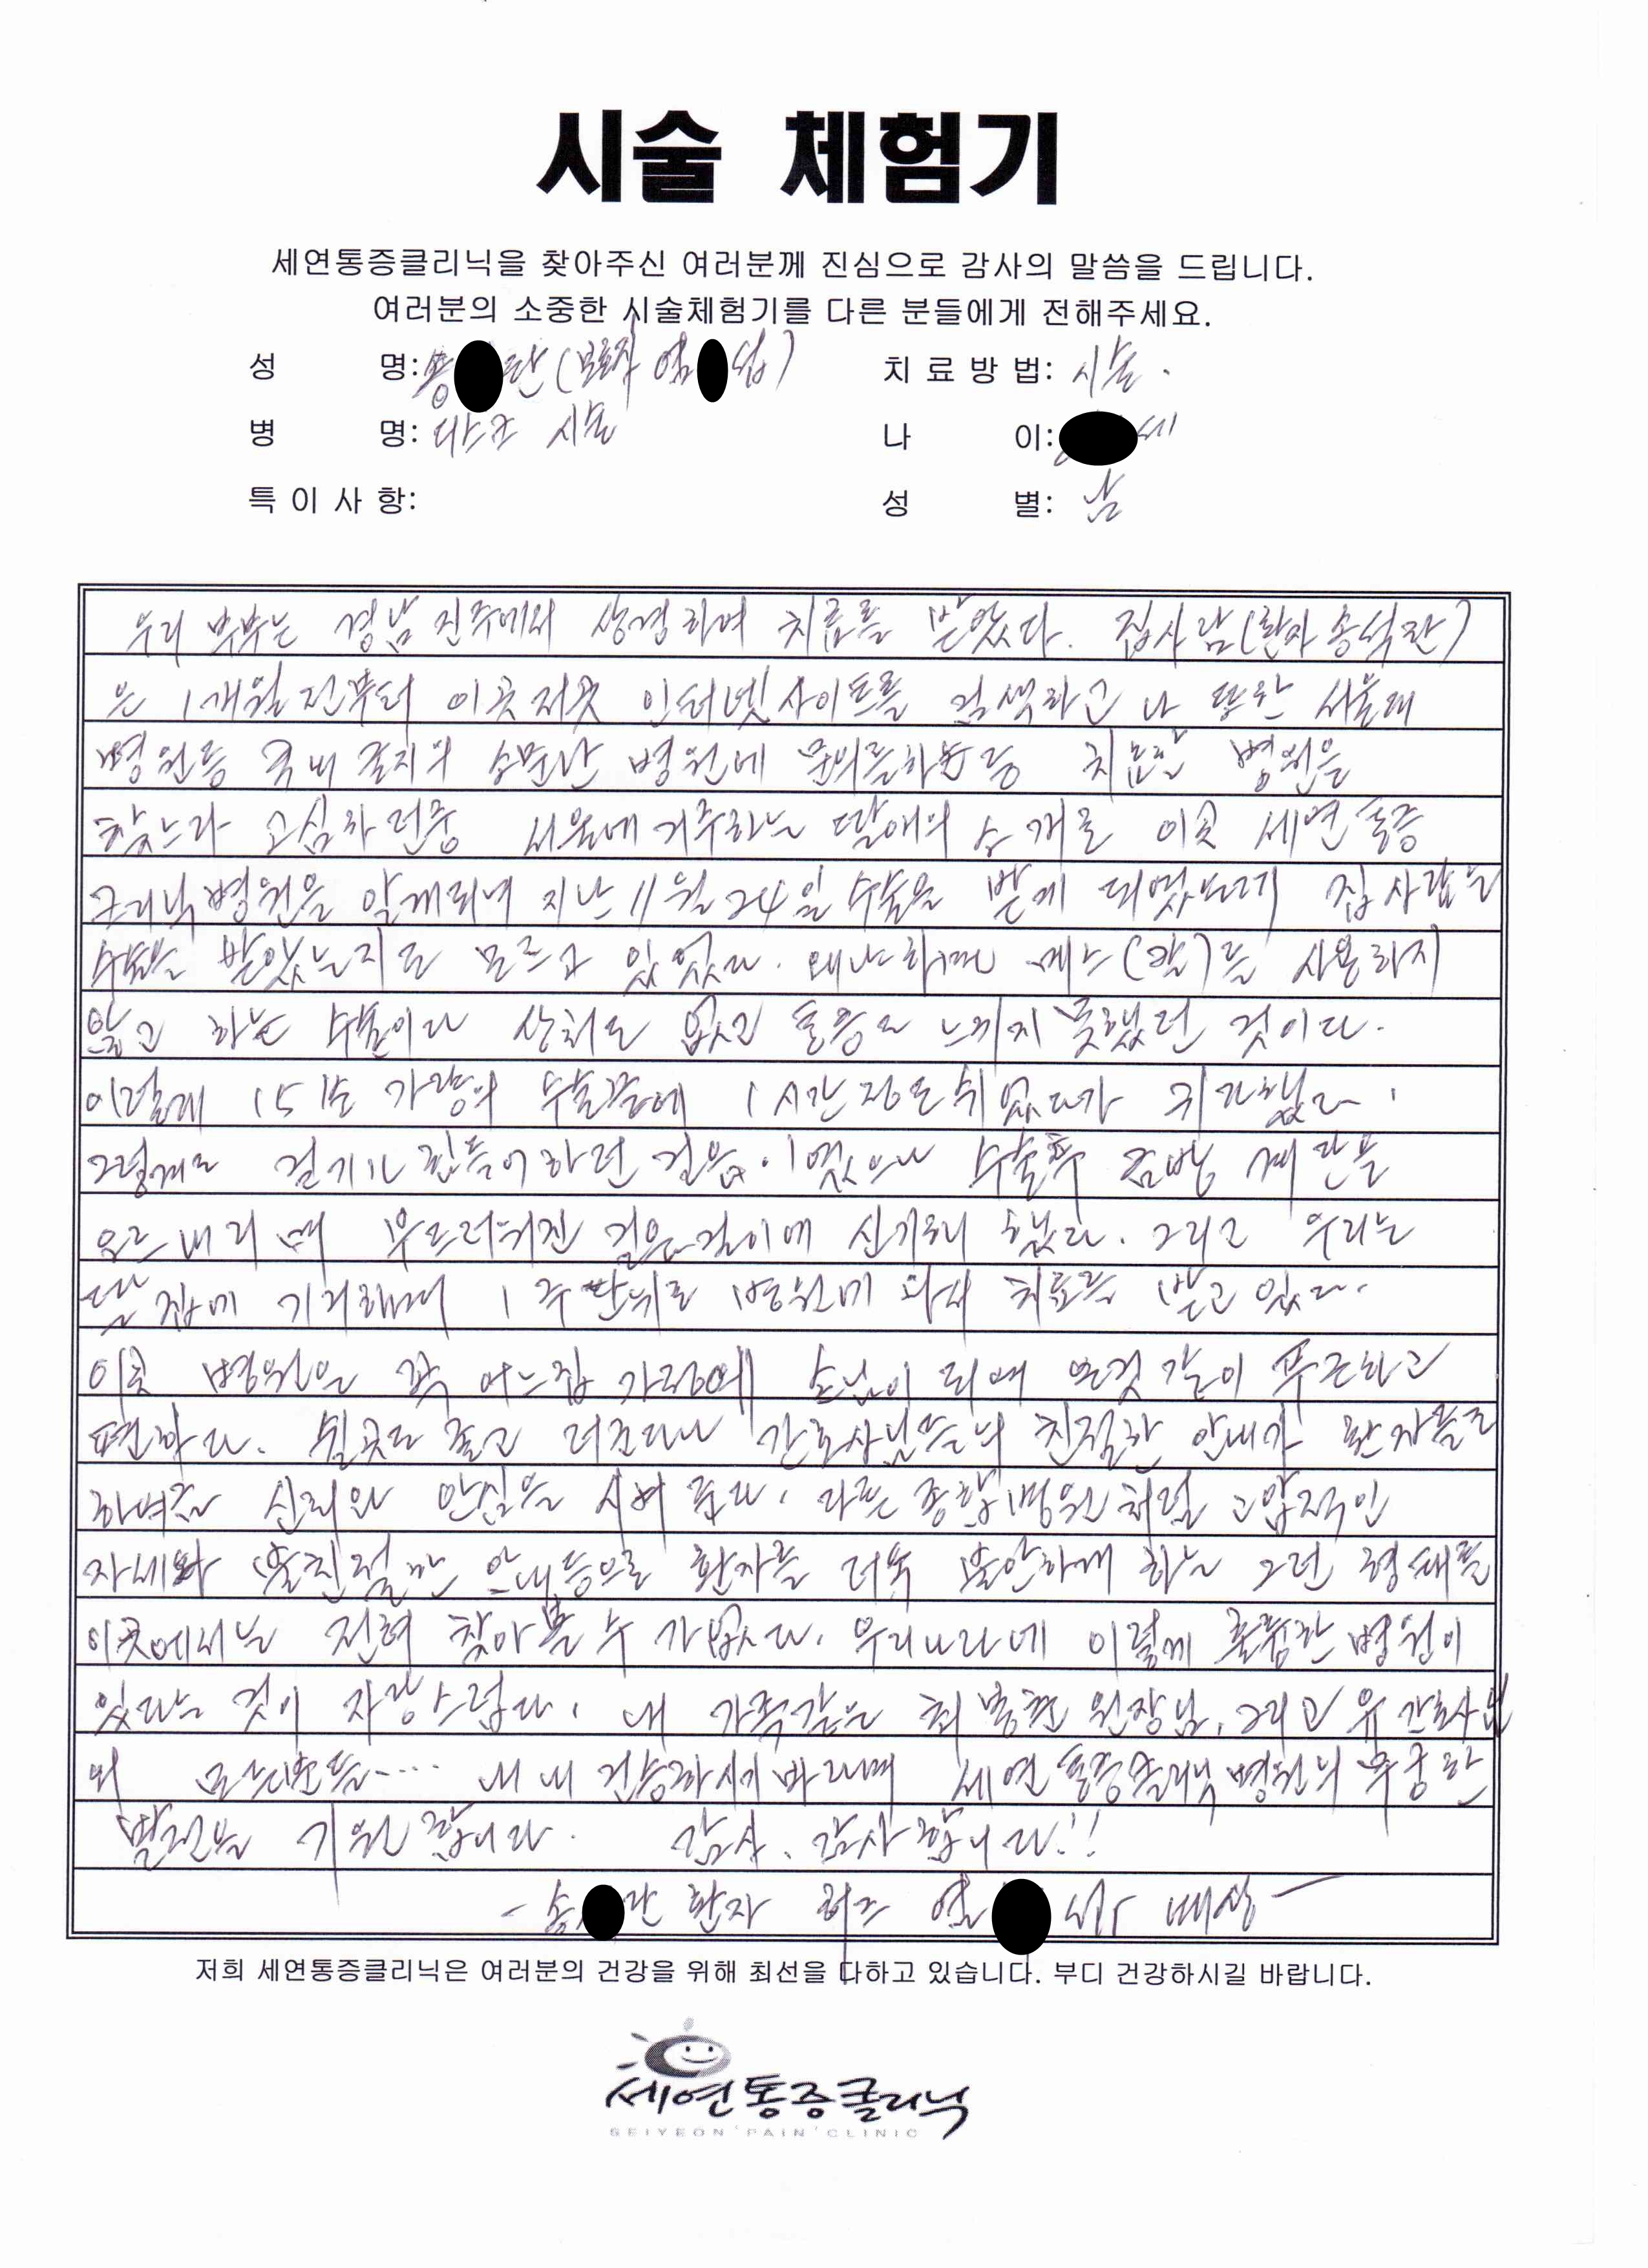 시술 체험기
세연통증클리닉을 찾아주신 여러분께 진심으로 감사의 말씀을 드립니다.
여러분의 소중한 시술체험기를 다른 분들에게 전해주세요.
성 명: 송 판 (보호자 엄 섭) 치료방법: 시술.
병 명: 디스크 시술 나 이: 세
특이사항: 성 별: 남
우리 부부는 경남 진주에서 상경하여 치료를 받았다. 집사람(환자 송석판)
은 1개월 전부터 이곳저곳 인터넷 사이트를 검색하고 나 또한 서울대
병원등 국내 굴지의 소문난 병원에 문의를하는등 치료할 병원을
찾느라 고심하던중 서울에 거주하는 딸애의 소개로 이곳 세연통증
크리닉병원을 알게되여 지난 11월 24일 수술을 받게 되였는데 집사람은
수술을 받았는지도 모르고 있었다. 왜냐하면 메스(칼)를 사용하지
않고 하는 수술이라 상처도 없고 통증도 느끼지 못했던 것이다.
이렇게 15분 가량의 수술끝에 1시간정도 쉬었다가 귀가했다.
그렇게도 걷기가 힘들어하던 걸음이였으나 수술후 금방 계단을
오르내리며 부드러워진 걸음걸이에 신기해 했다. 그리고 우리는
딸집에 기거하며 1주 단위로 병원에 와서 치료를 받고 있다.
이곳 병원은 꼭 어느집 가정에 손님이 되여 온것 같이 푸근하고
편하다. 쉴곳도 좋고 더군다나 간호사님들의 친절한 안내가 환자들로
하여금 신뢰와 안심을 시켜 준다. 다른 종합병원처럼 고압적인
자세와 불친절한 안내등으로 환자를 더욱 불안하게 하는 그런 형태를
이곳에서는 전혀 찾아볼 수가 없다. 우리나라에 이렇게 훌륭한 병원이
있다는 것이 자랑스럽다. 내 가족같은 최봉춘 원장님, 그리고 유 간호사님
외 모든분들.... 내내 건승하시기 바라며 세연통증클리닉병원의 무궁한
발전을 기원합니다. 감사, 감사합니다!!
- 송 판 환자 허즈 엄 섭 배상 -
저희 세연통증클리닉은 여러분의 건강을 위해 최선을 다하고 있습니다. 부디 건강하시길 바랍니다.
세연통증클리닉
SEIYEON PAIN CLINIC